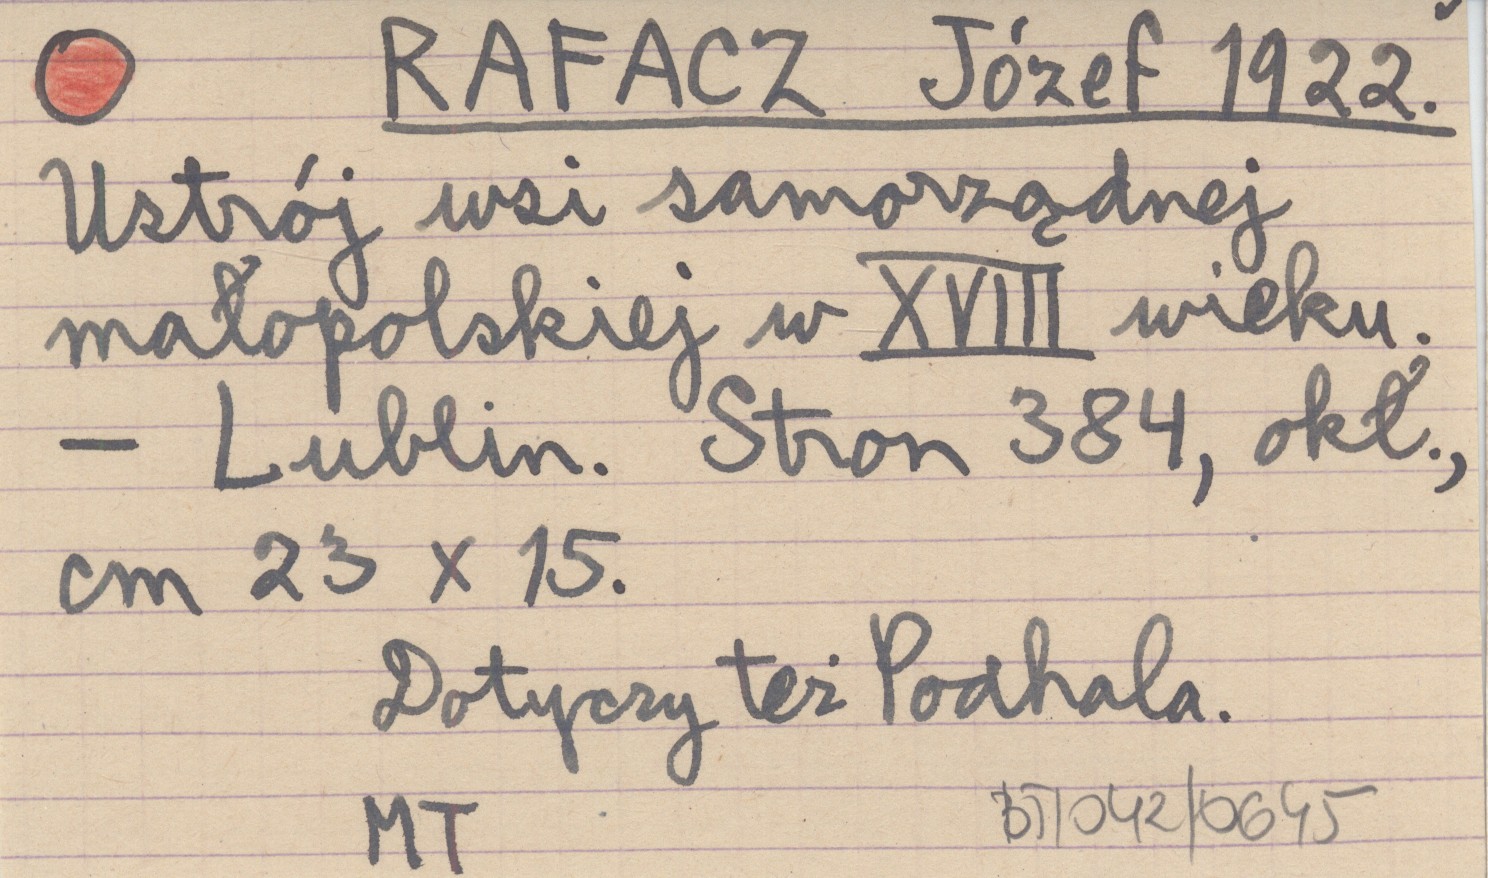 RAFACZ Józef 1922.
Ustrój wsi samorządnej
małopolskiej w XVIII wieku.
— Lublin. Stron 384, okł.,
cm 23 x 15.
Dotyczy też Podhala.
MT
BT/042/0645